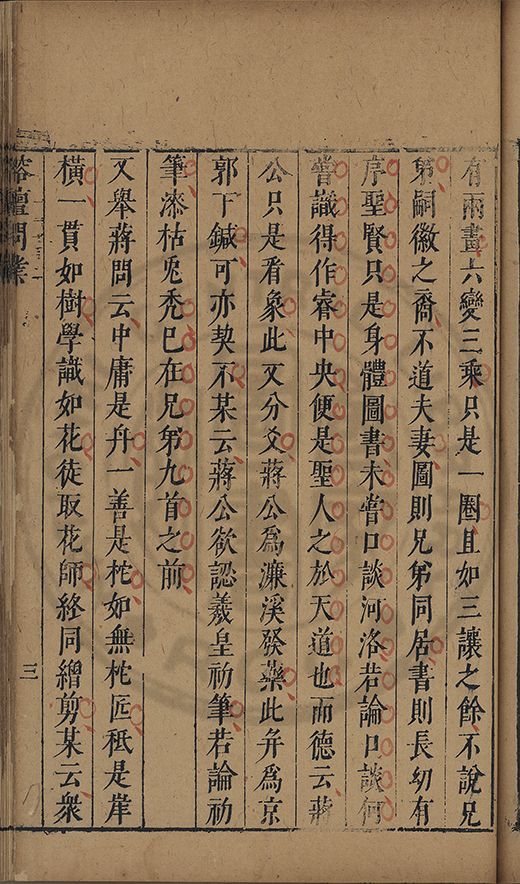 有兩畫六變三乘只是一圈且如三讓之餘不說兄
弟嗣徽之裔不道夫妻圖則兄弟同居書則長幼有
序聖賢只是身體圖書未嘗口談河洛若論口談何
嘗識得作睿中央便是聖人之於天道也而德云蔣
公只是看象此又分爻蔣公為濂溪發藥此弁為京
郭下鍼可亦契不某云蔣公欲認羲皇初筆若論初
筆漆枯兎禿已在兄弟九首之前
又舉蔣問云中庸是舟一善是柁如無柁匠秪是岸
橫一貫如樹學識如花徒取花師終同繒剪某云衆
榕壇問業
三